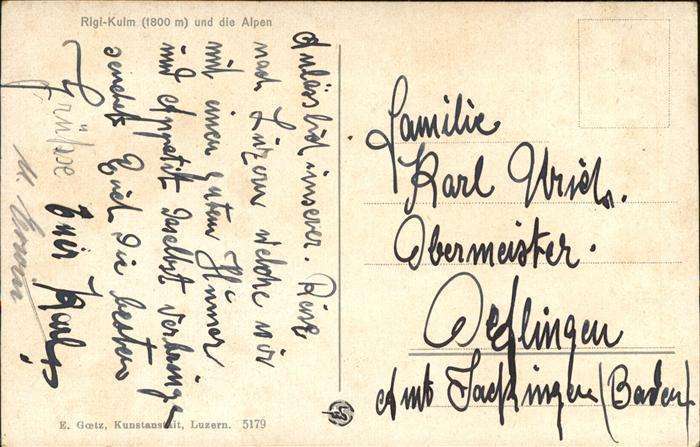 Rigi-Kulm (1800 m) und die Alpen
Anlässlich unserer. Reise
nach Luzern welche wir
mit einen guten Humor
und Appetit daselbst verbringen
sendet Euch die besten
Grüsse Euer Karl
u. Erwin
Familie
Karl Ursich.
Obermeister.
Oeflingen
Amt Säckingen (Baden)
E. Gœtz, Kunstanstalt, Luzern. 5179